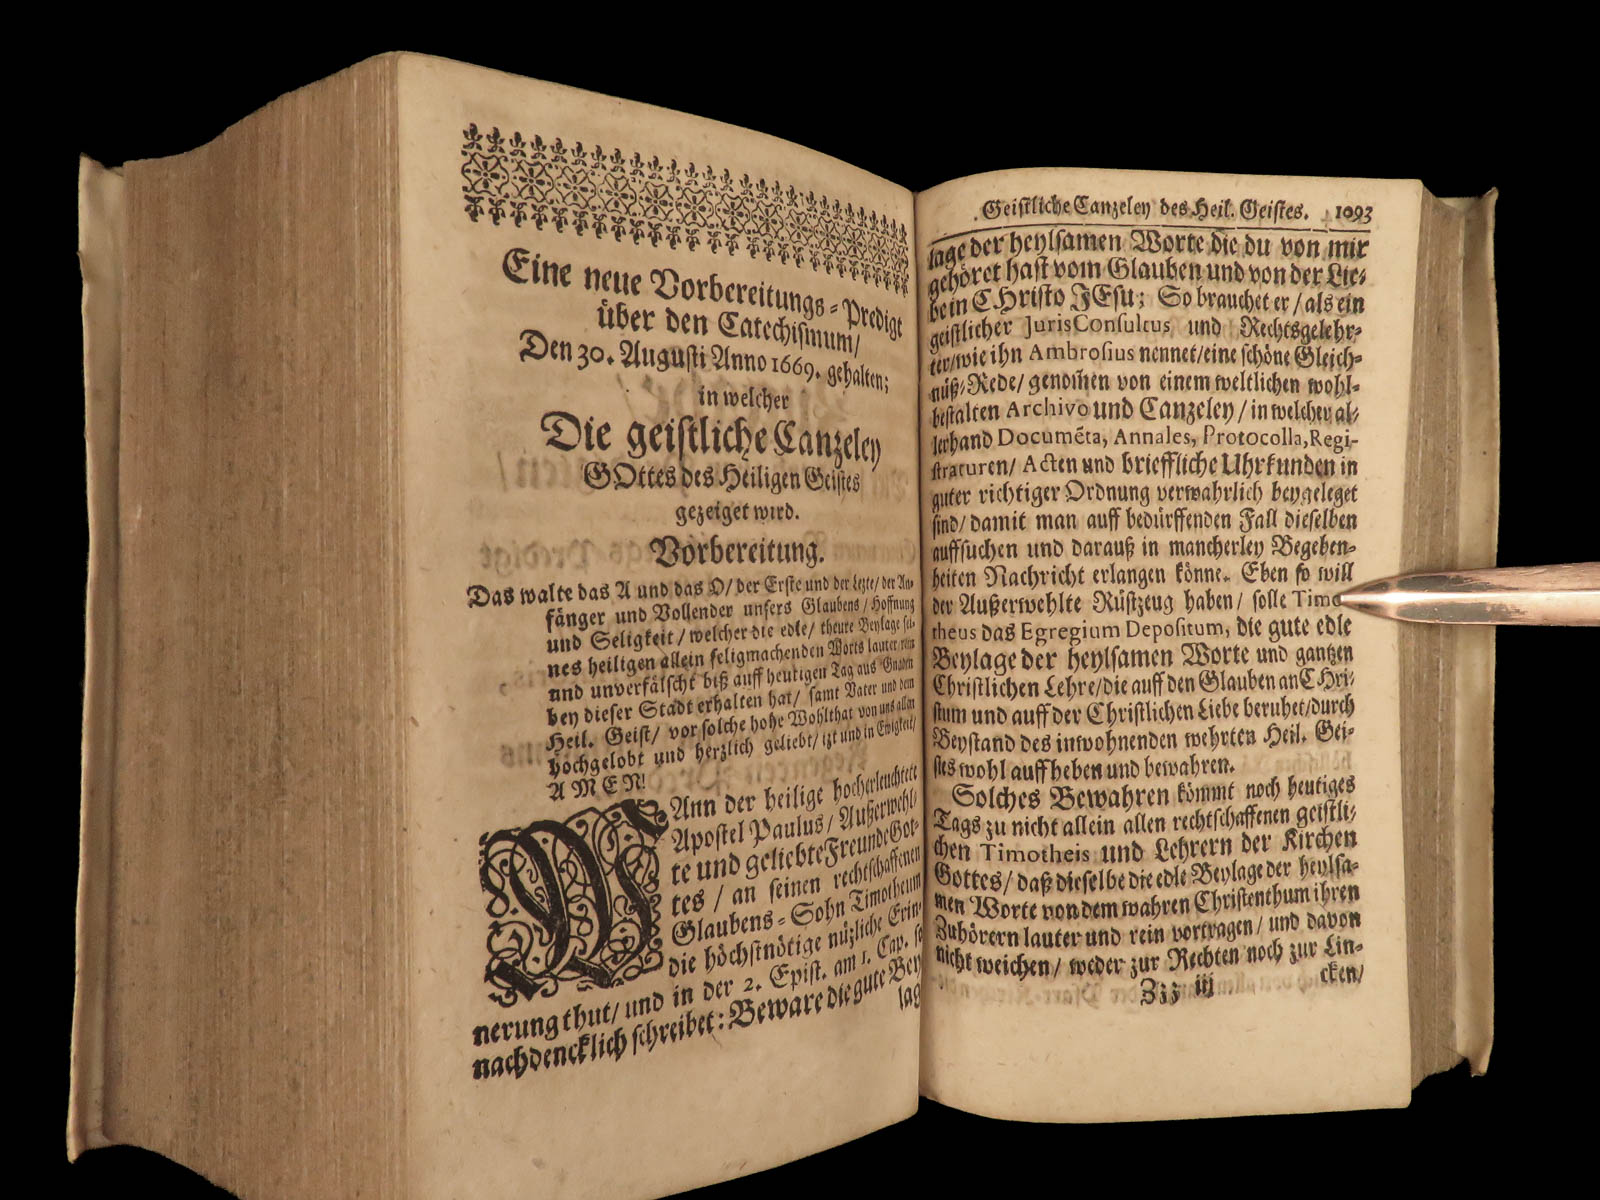 Eine neue Vorbereitungs-Predigt
über den Catechismum/
Den 30. Augusti Anno 1669. gehalten;
in welcher
Die geistliche Canzeley
GOttes des Heiligen Geistes
gezeiget wird.
Vorbereitung.
Das walte das A und das O/ der Erste und der Lezte/ der An-
fänger und Vollender unsers Glaubens/ Hoffnung
und Seligkeit/ welcher die edle/ theure Beylage sei-
nes heiligen allein seligmachenden Worts lauter/ rein
und unverfälscht biß auff heutigen Tag aus Gnaden
bey dieser Stadt erhalten hat/ samt Vater und dem
Heil. Geist/ vor solche hohe Wohlthat von uns allen
hochgelobt und herzlich geliebt/ izt und in Ewigkeit/
AMEN!
WAnn der heilige hocherleuchtete
Apostel Paulus/ Außerwehl-
te und geliebte Freunde Got-
tes/ an seinen rechtschaffenen
Glaubens-Sohn Timotheum
die höchstnötige nüzliche Erin-
nerung thut/ und in der 2. Epist. am 1. Cap. so
nachdencklich schreibet: Beware die gute Bey
lag
Geistliche Canzeley des Heil. Geistes. 1093
lage der heylsamen Worte die du von mir
gehöret hast vom Glauben und von der Lie-
be in CHristo JEsu; So brauchet er/ als ein
geistlicher JurisConsultus und Rechtsgelehr-
ter/ wie ihn Ambrosius nennet/ eine schöne Gleich-
nüß-Rede/ genom̃en von einem weltlichen wohl-
bestalten Archivo und Canzeley/ in welcher al-
lerhand Documẽta, Annales, Protocolla, Regi-
straturen/ Acten und brieffliche Uhrkunden in
guter richtiger Ordnung verwahrlich beygeleget
sind/ damit man auff bedürffenden Fall dieselben
auffsuchen und darauß in mancherley Begeben-
heiten Nachricht erlangen könne. Eben so will
der Außerwehlte Rüstzeug haben/ solle Timo-
theus das Egregium Depositum, die gute edle
Beylage der heylsamen Worte und gantzen
Christlichen Lehre/ die auff den Glauben an CHri-
stum und auff der Christlichen Liebe beruhet/ durch
Beystand des inwohnenden wehrten Heil. Gei-
stes wohl auffheben und bewahren.
Solches Bewahren kömmt noch heutiges
Tags zu nicht allein allen rechtschaffenen geistli-
chen Timotheis und Lehrern der Kirchen
Gottes/ daß dieselbe die edle Beylage der heylsa-
men Worte von dem wahren Christenthum ihren
Zuhörern lauter und rein vortragen/ und davon
nicht weichen/ weder zur Rechten noch zur Lin-
Zzz iij cken/